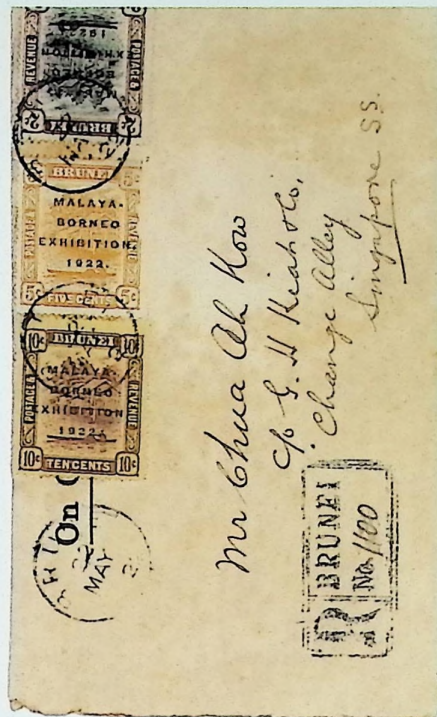 POSTAGE &
REVENUE
BRUNEI
2c
2c
MALAYA-
BORNEO
EXHIBITION
1922.
BRUNEI
5c
5c
POSTAGE &
REVENUE
MALAYA-
BORNEO
EXHIBITION.
1922.
5c
FIVE CENTS
5c
10c
BRUNEI
10c
POSTAGE &
REVENUE
MALAYA-
BORNEO
EXHIBITION
1922.
10c
TEN CENTS
10c
On
BRU
22
MAY
Mr Chua Ah Kow
c/o G. H Kiat & Co,
Change Alley
Singapore SS.
R
BRUNEI
No. 1100